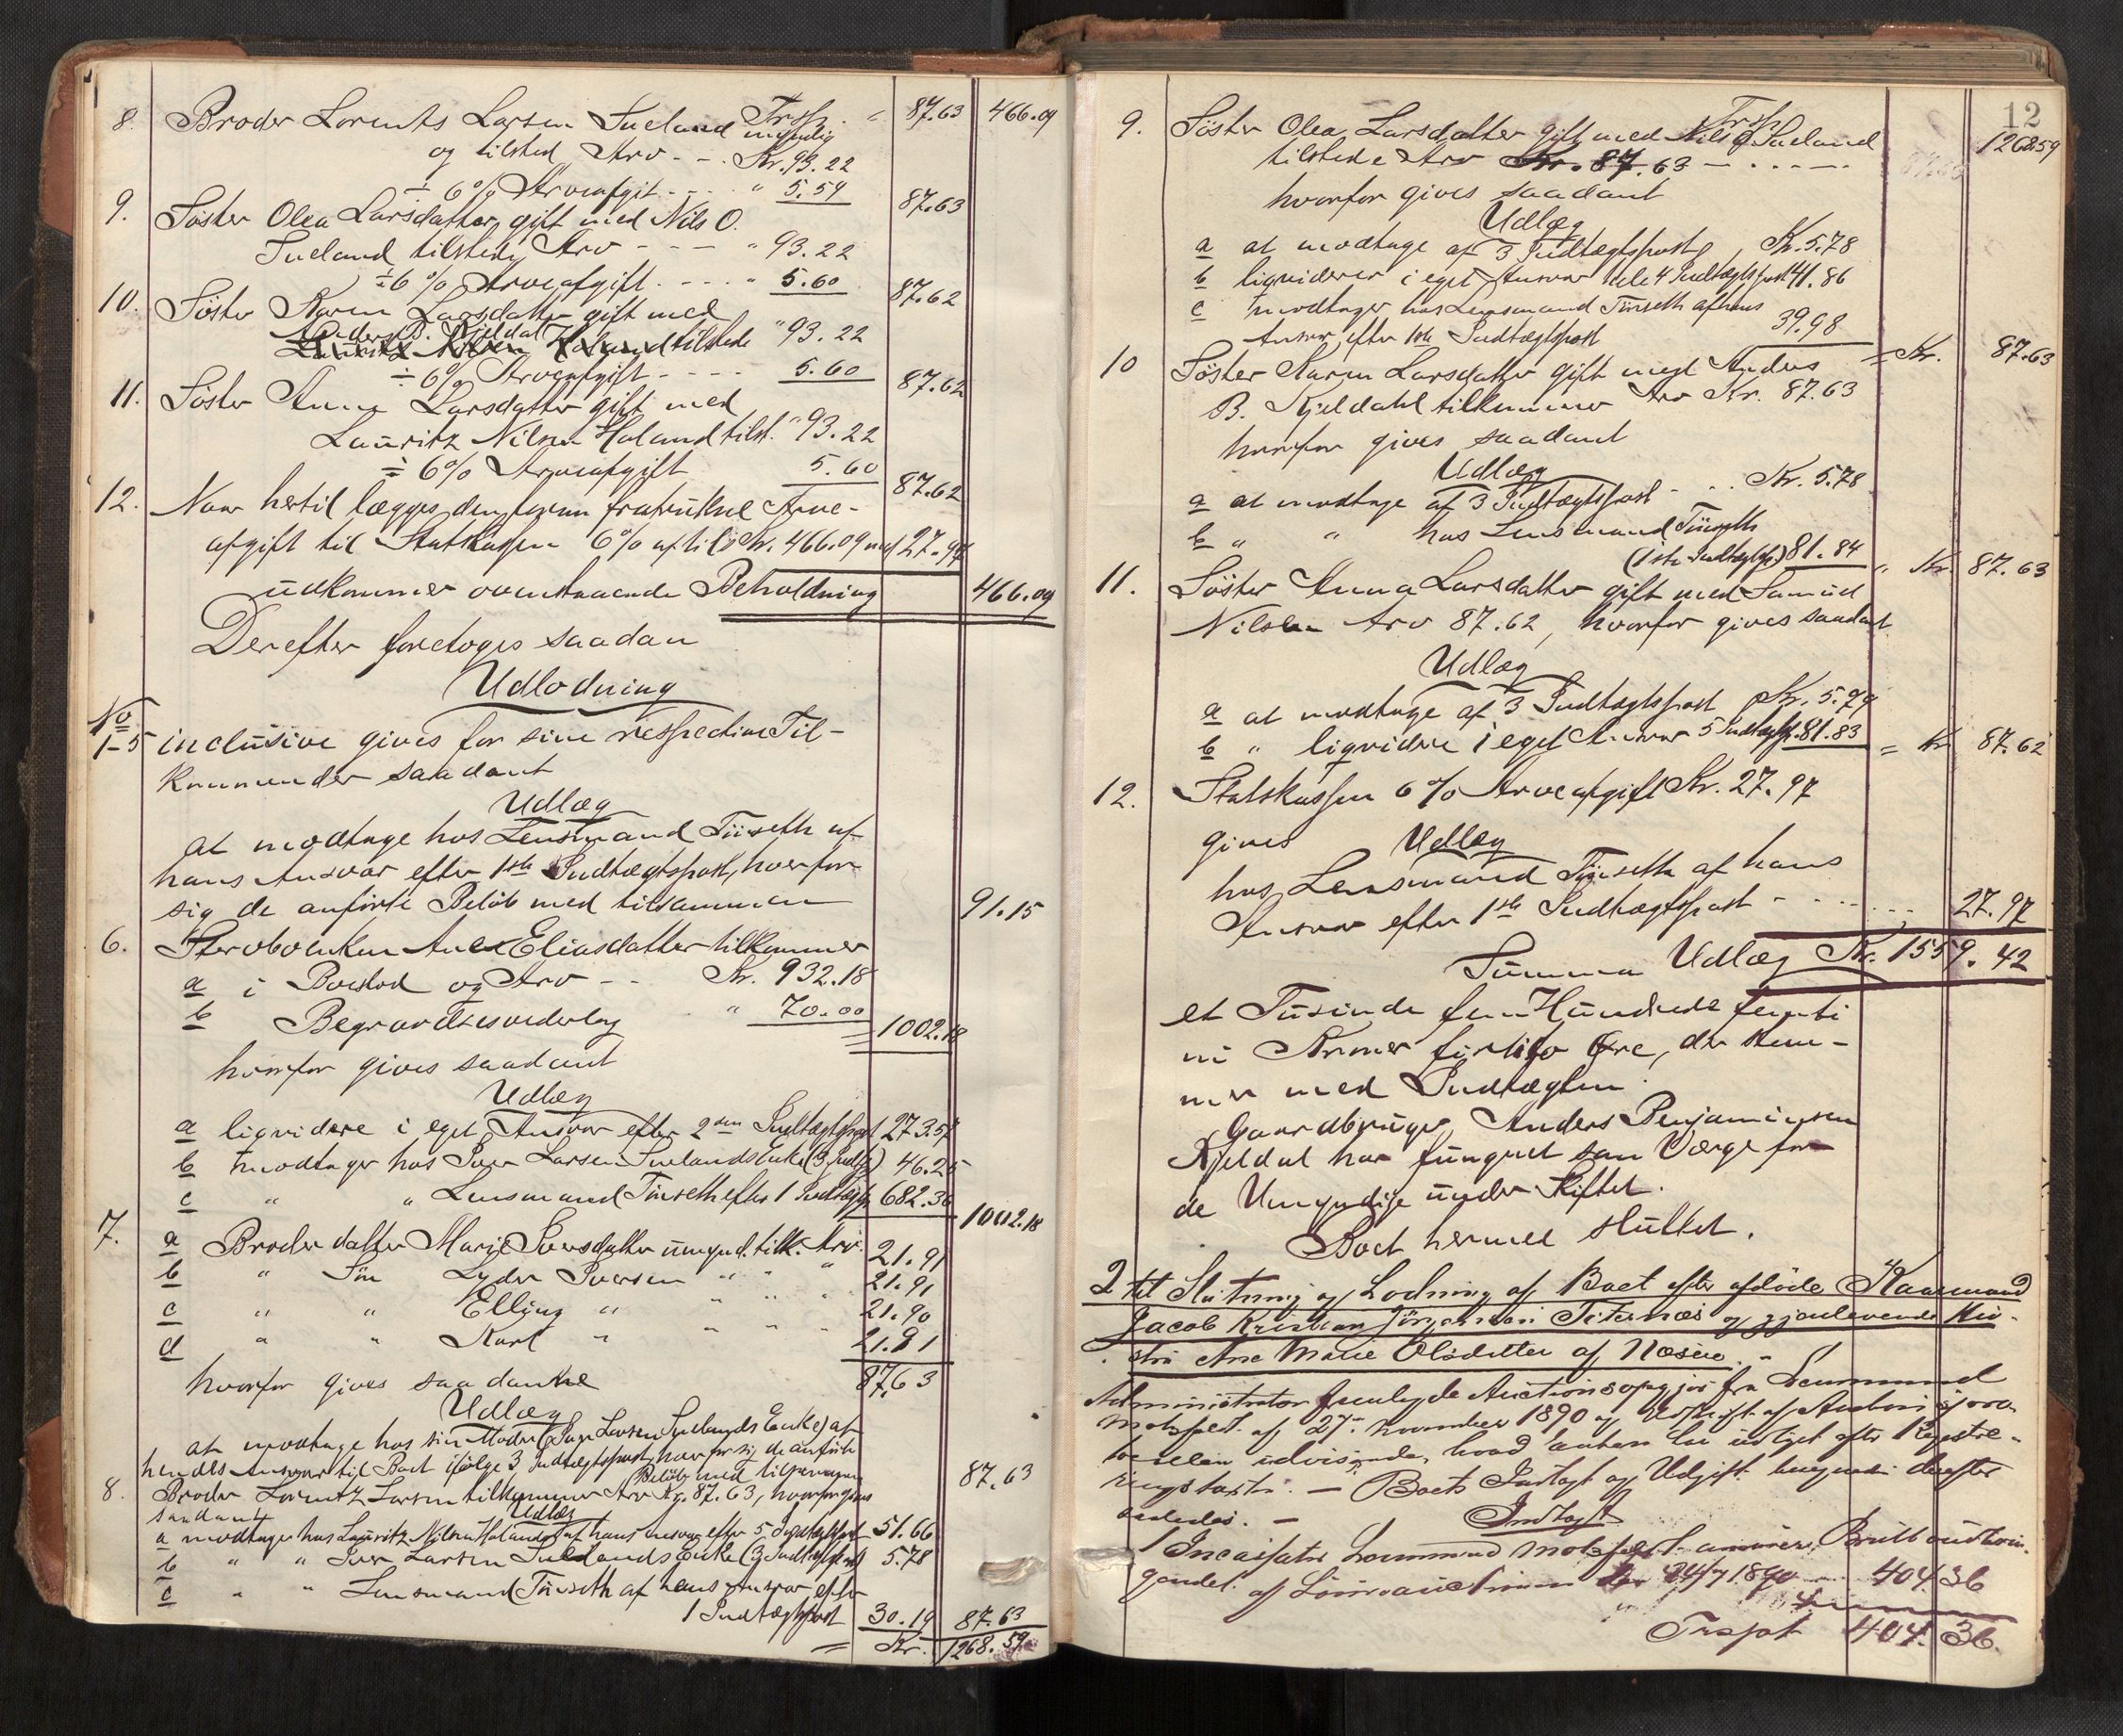 Trsp. " 87.63 466.09
8. Broder Lorents Larsen Sueland myndig
og tilsted Arv - - Kr. 93.22
÷ 6% Arveafgit - - - " 5.59 87.63
9. Söster Olea Larsdatter gift med Nils O.
Sueland tilstede Arv - - - " 93.22
÷ 6% Arveafgift. - - - " 5.60 87.62
10. Söster Karen Larsdatter gift med
Anders B. Kjeldal
Lauritz Nilsen Haland tilstede " 93.22
÷ 6% Arveafgift - - - - 5.60 87.62
11. Söster Anna Larsdatter gift med
Lauritz Nilsen Haland tilst. " 93.22
÷ 6% Arveafgift 5.60 87.62
12. Naar hertil lægges den foran fratrukne Arve-
afgift til Statskassen 6% af tils. Kr. 466.09 med 27.97
udkommer ovenstaaende Beholdning 466.09
Derefter foretoges saadan
Udlodning
No 1-5 inclusive gives for sine respective Til-
kommender saadant
Udlæg
at modtage hos Lensmand Tüseth af
hans Ansvar efter 1ste Indtægtspost, hver for
sig de anförte Belöb med tilsammen 91.15
6. Sterboenken Ane Eliasdatter tilkommer
a i Boeslod og Arv - - Kr. 932.18
b Begravelsesvederlag " 70.00 1002.18
hvorfor gives saadant
Udlæg
a liqvidere i eget Ansvar efter 2den Indtægtspost 273.57
b modtager hos Iver Larsen Suelands Enke (3 Indtp) 46.25
c " " Lensmand Tüseth efter 1 Indtægtp 682.36 1002.18
7. a Broderdatter Marie Iversdatter umynd. tilk. Arv 21.91
b " Sön Lyder Iversen " " " 21.91
c " " Elling " " " " 21.90
d " " Karl " " " " 21.91
hvorfor gives saadanne 87.63
Udlæg
at modtage hos sin Moder (Iver Larsen Suelands Enke) af
hendes Ansvar til Boet ifölge 3 Indtægtspost, hver for sig de anförte
Belöb med tilsammen 87.63
8. Broder Lorentz Larsen tilkommer Arv Kr. 87.63, hvorfor gives
saadant Udlæg
a modtager hos Lauritz Nilsen Haland af hans Ansvar efter 5 Indtægtspost 51.66
b " " Iver Larsen Suelands Enke (3 Indtægtspost) 5.78
c " " Lensmand Tüseth af hans Ansvar efter
1 Indtægtspost 30.19 87.63
= Kr. 1268.59
12
Trsp 1268.59
9. Söster Olea Larsdatter gift med Nils O Sueland
tilstede Arv Kr. 87.63 - - - - -
hvorfor gives saadant
Udlæg
a at modtage af 3 Indtægtspost Kr. 5.78
b liqviderer i eget Ansvar 4 Indtægtspost 41.86
c modtager hos Lensmand Tüseth af hans
Ansvar efter 1ste Indtægtspost 39.98 = Kr. 87.63
10 Söster Karen Larsdatter gift med Anders
B. Kjeldahl tilkommer Arv Kr. 87.63
hvorfor gives saadant
Udlæg
a at modtage af 3 Indtægtspost - . . Kr. 5.78
b " " hos Lensmand Tüseth
(1ste Indtægtsp) 81.84 " Kr 87.63
11. Söster Anna Larsdatter gift med Samuel
Nilsen Arv 87.62, hvorfor gives saadant
Udlæg
a at modtage af 3 Indtægtspost Kr. 5.79
b " liqvidere i eget Ansvar 5 Indtægtsp. 81.83 = Kr 87.62
12. Statskassen 6% Arveafgift Kr. 27.97
gives Udlæg
hos Lensmand Tüseth af hans
Ansvar efter 1ste Indtægtspost - - . . . . 27.97
Summa Udlæg Kr. 1559.42
et Tusinde fem Hundrede femti
ni Kroner førtito Øre, der stem-
mer med Indtægten.
Gaardbruger Anders Benjaminsen
Kjeldal har fungert som Værge for
de Umyndige under Skiftet.
Boet hermed sluttet.
2 til Slutning og Lodning af Boet efter afdöde Kaarmand
Jacob Kristian Jörgensen Titernæs og gjenlevende Hu-
stru Ane Marie Olsdatter af Næsøe. -
Administrator fremlagde Auctionsopgjör fra Lensmand
Molsfeldt af 27. november 1890 og Udskrift af Auctions
udvisende, hvad enken har udlagt efter Registre-
ringstaxter. - Boets Indtægt og Udgift beregnedes derefter
saaledes. -
Indtægt
1 Incassator Lensmand Molsfeldt ansvarer Brutto udbrin-
gendet af Lösøreauctionen den 24/7 1890 404.36
Trspt 404.36.